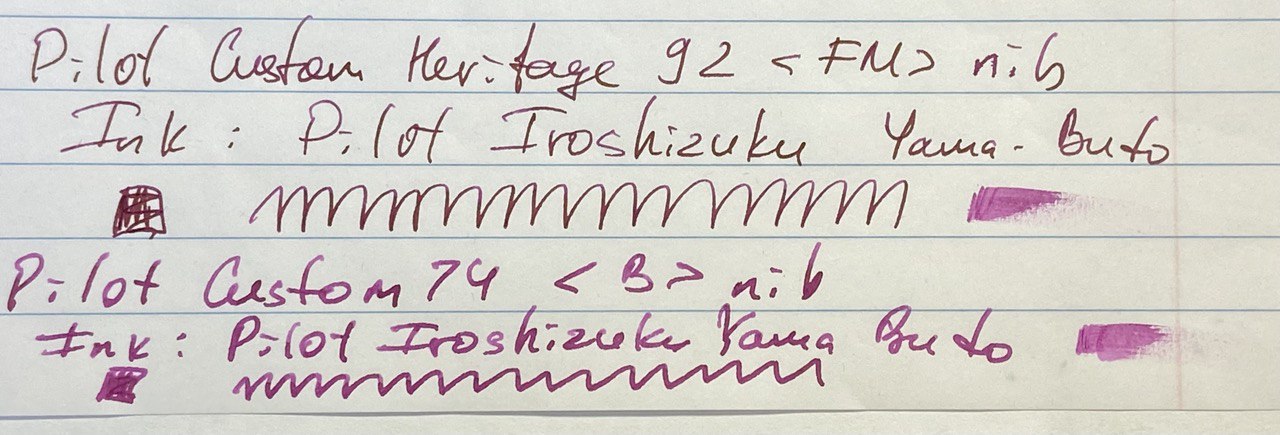 Pilot Custom Heritage 92 <FM> nib
Ink: Pilot Iroshizuku Yama-Buto
Pilot Custom 74 <B> nib
Ink: Pilot Iroshizuku Yama Buto